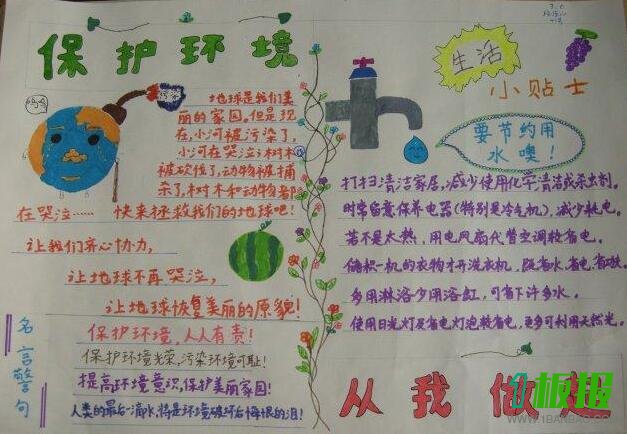 保护环境
地球是我们美
丽的家园。但是现
在,小河被污染了,
小河在哭泣;树木
被砍伐了,动物被捕
杀了,树木和动物都
在哭泣…… 快来拯救我们的地球吧!
让我们齐心协力,
让地球不再哭泣,
让地球恢复美丽的原貌!
名言警句
保护环境,人人有责!
保护环境光荣,污染环境可耻!
提高环境意识,保护美丽家园!
人类的最后一滴水,将是环境破坏后悔恨的泪!
3.6
生活
小贴士
要节约用
水噢!
打扫清洁家居,减少使用化学清洁或杀虫剂。
时常留意保养电器(特别是冷气机),减少耗电。
若不是太热,用电风扇代替空调较省电。
储积一机的衣物才开洗衣机,既省水,省电,省工夫。
多用淋浴少用浴缸,可省下许多水。
使用日光灯及省电灯泡较省电,更多可利用天然光。
从我做起
板报
WWW.1BANBAO.COM